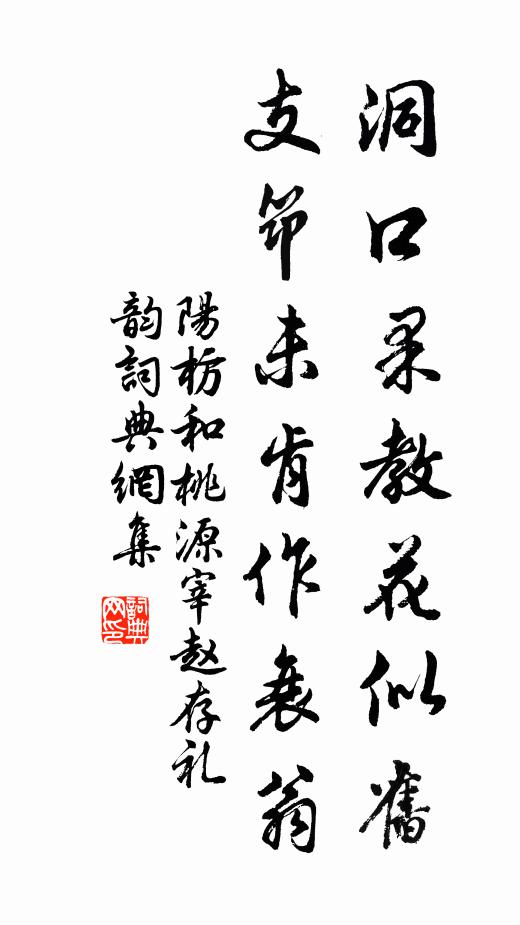 洞口果教花似舊
支笻未肯作衰翁
陽枋和桃源宰赵存礼
韵詞典網集
詞典
网